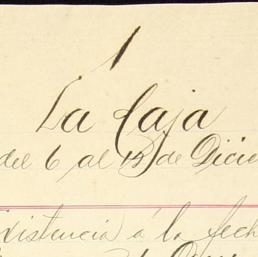 1
La Caja
del 6 al 12 de Dicie
xistencia á la fech